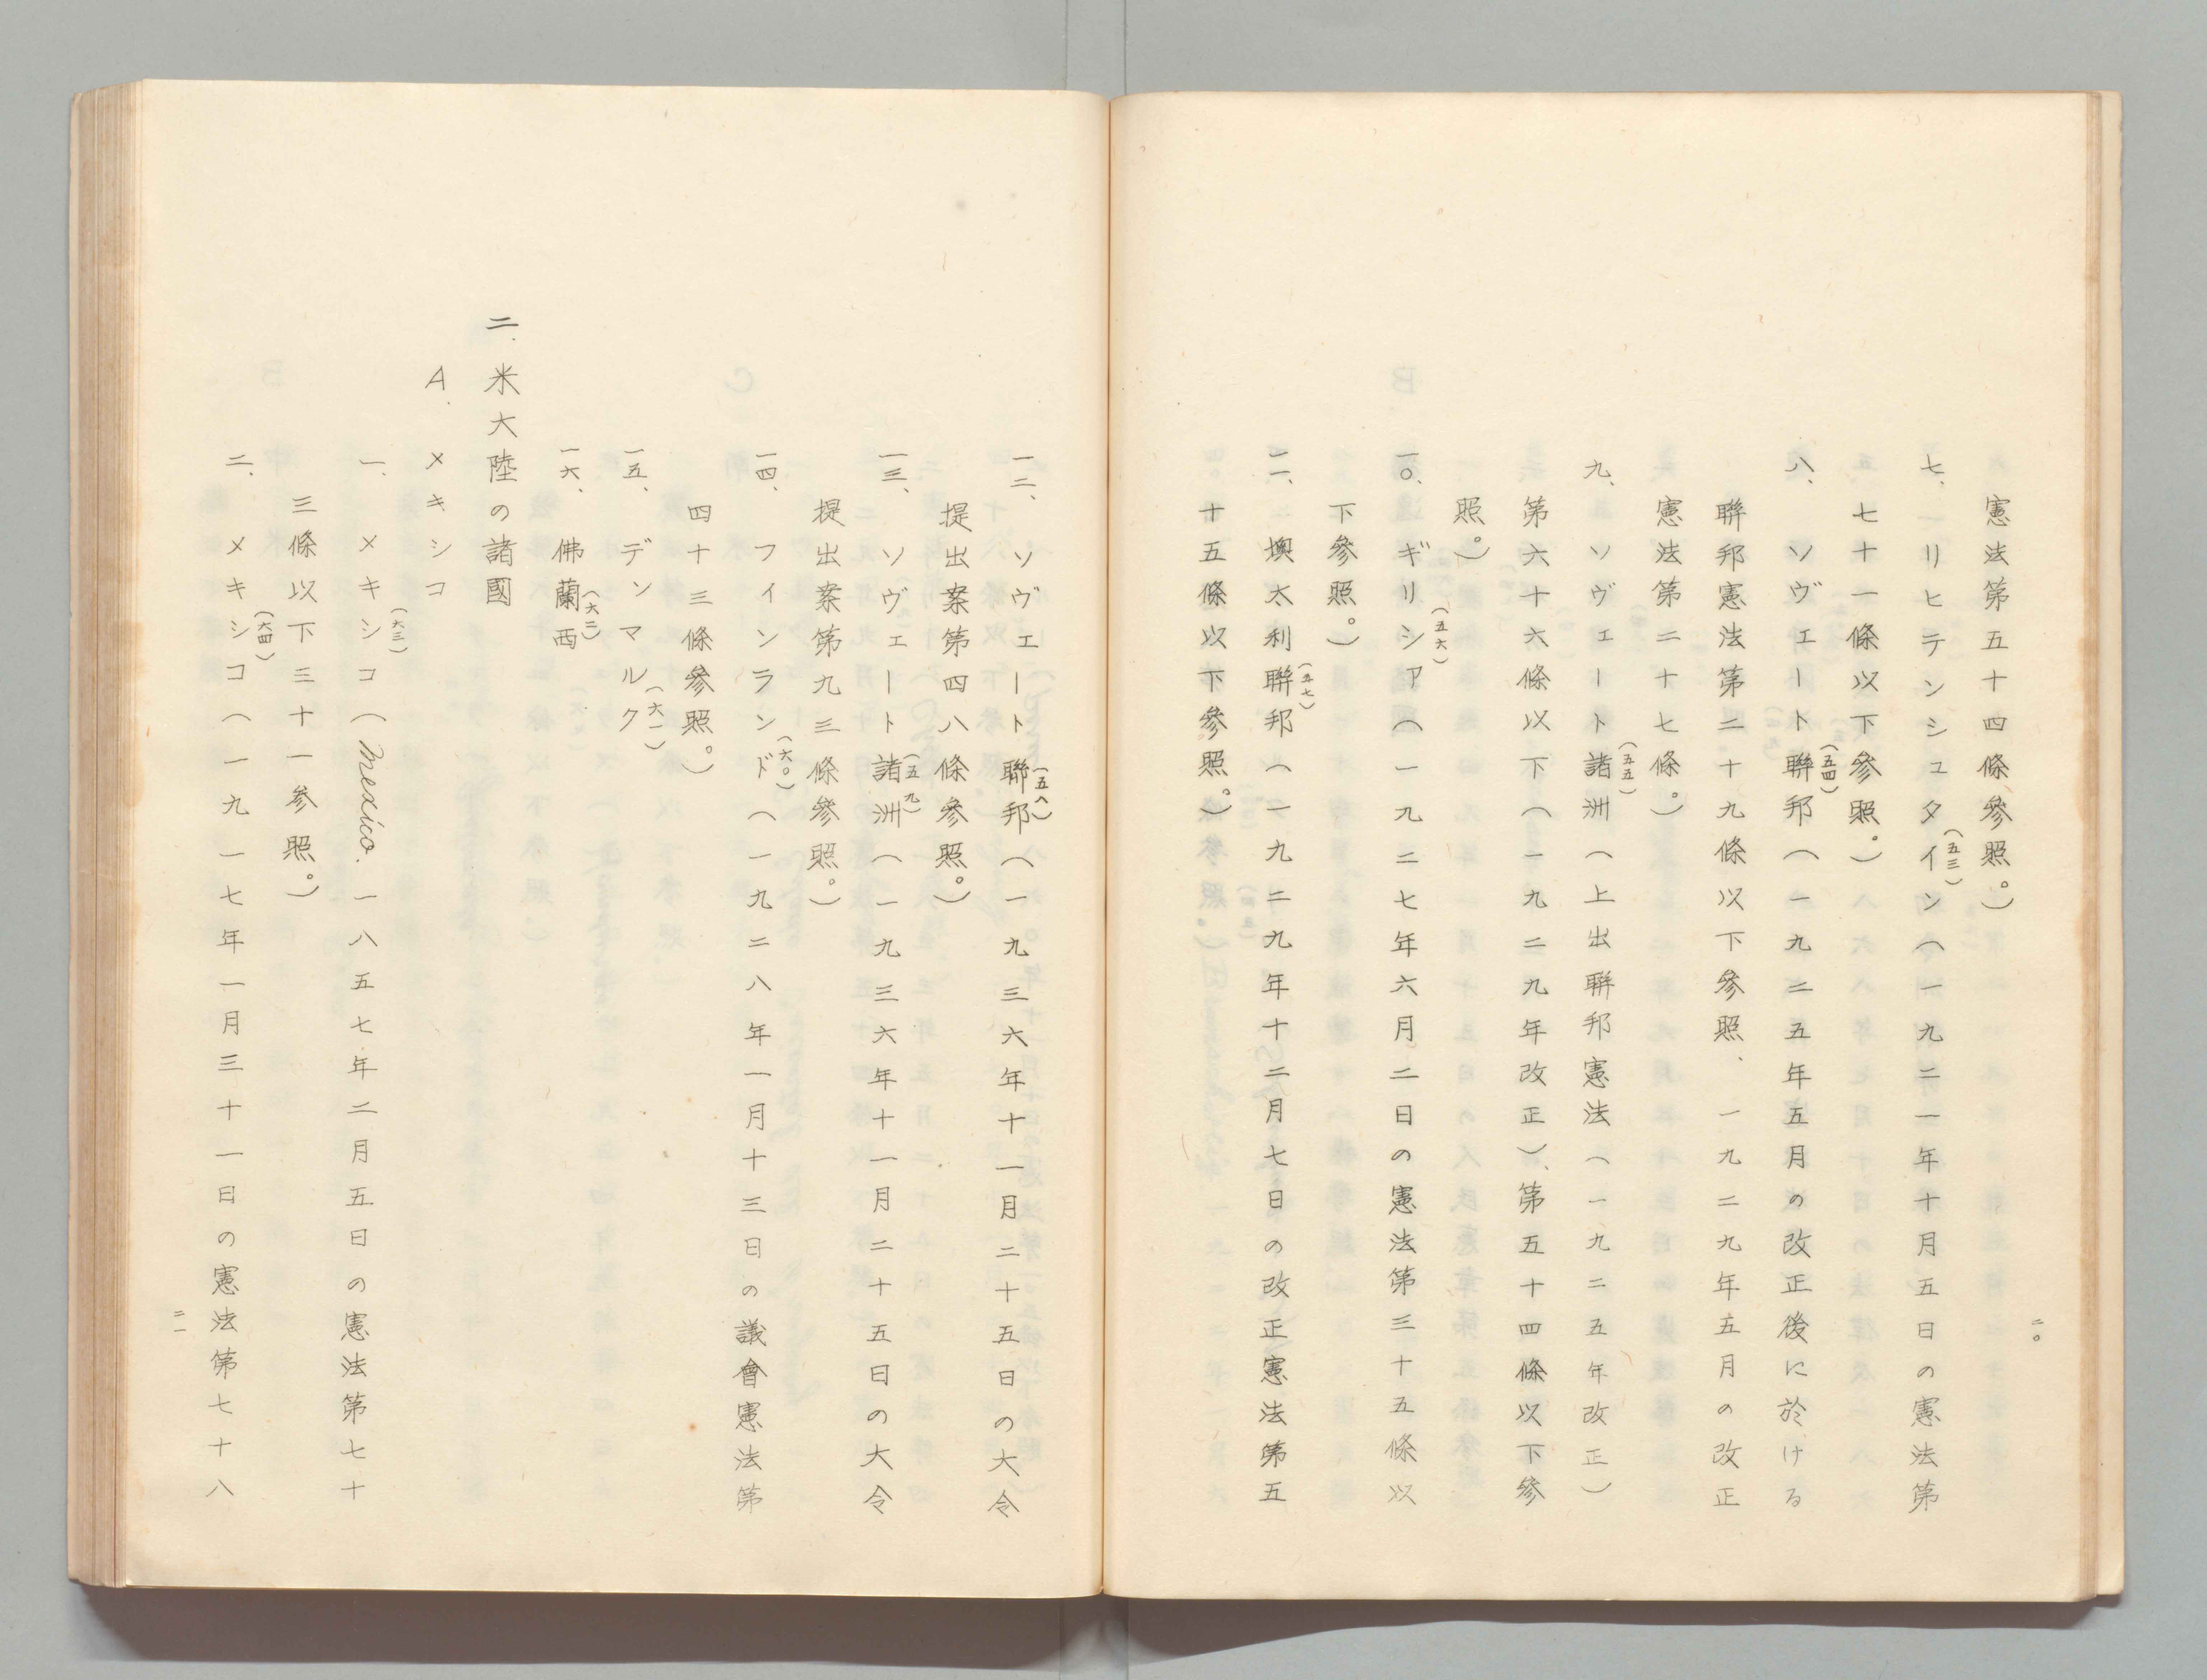 二〇
憲法第五十四條參照。)
七、リヒテンシュタイン(五三)(一九二一年十月五日の憲法第
七十一條以下參照。)
八、ソヴェート聯邦(五四)(一九二五年五月の改正後に於ける
聯邦憲法第二十九條以下參照、一九二九年五月の改正
憲法第二十七條。)
九、ソヴェート諸洲(五五)(上出聯邦憲法(一九二五年改正)
第六十六條以下(一九二九年改正)、第五十四條以下參
照。)
一〇、ギリシア(五六)(一九二七年六月二日の憲法第三十五條以
下參照。)
一一、墺太利聯邦(五七)(一九二九年十二月七日の改正憲法第五
十五條以下參照。)
一二、ソヴェート聯邦(五八)(一九三六年十一月二十五日の大令
提出案第四八條參照。)
一三、ソヴェート諸洲(五九)(一九三六年十一月二十五日の大令
提出案第九三條參照。)
一四、フインランド(六〇)(一九二八年一月十三日の議會憲法第
四十三條參照。)
一五、デンマルク(六一)
一六、佛蘭西(六二)
二、米大陸の諸國
A、メキシコ
一、メキシコ(六三)(Mexico. 一八五七年二月五日の憲法第七十
三條以下三十一參照。)
二、メキシコ(六四)(一九一七年一月三十一日の憲法第七十八
二一